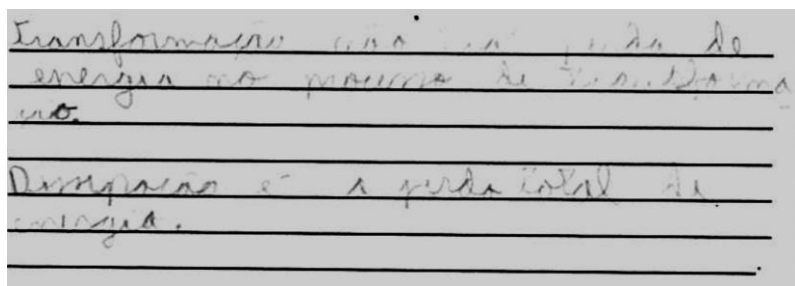 Transformação não há perda de
energia no processo de transforma
ção.
Dissipação é a perda total de
energia.